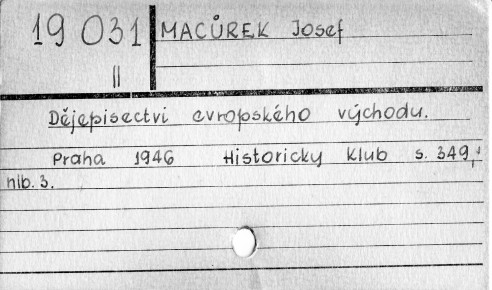 19 031
II
MACŮREK Josef
Dějepisectvi evropského východu.
Praha 1946 Historicky Klub s. 349,
nlb. 3.